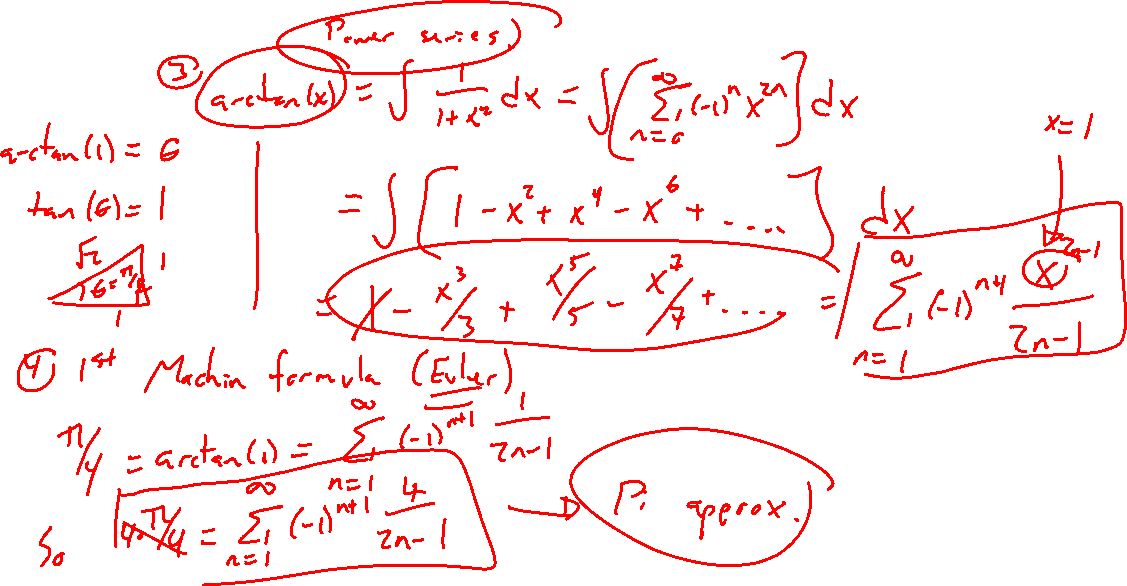 Power series
③ arctan(x) = ∫ 1/(1+x²) dx = ∫ [ ∑_{n=0}^{∞} (-1)^n x^{2n} ] dx
x=1
arctan(1) = θ
tan(θ) = 1
= ∫ [ 1 - x² + x⁴ - x⁶ + .... ] dx
√2 1
θ = π/4
1
= x - x³/3 + x⁵/5 - x⁷/7 + ..... = ∑_{n=1}^{∞} (-1)^{n+1} x^{2n-1}/(2n-1)
④ 1st Machin formula (Euler)
π/4 = arctan(1) = ∑_{n=1}^{∞} (-1)^{n+1} 1/(2n-1)
So 4·π/4 = ∑_{n=1}^{∞} (-1)^{n+1} 4/(2n-1) → Pi approx.